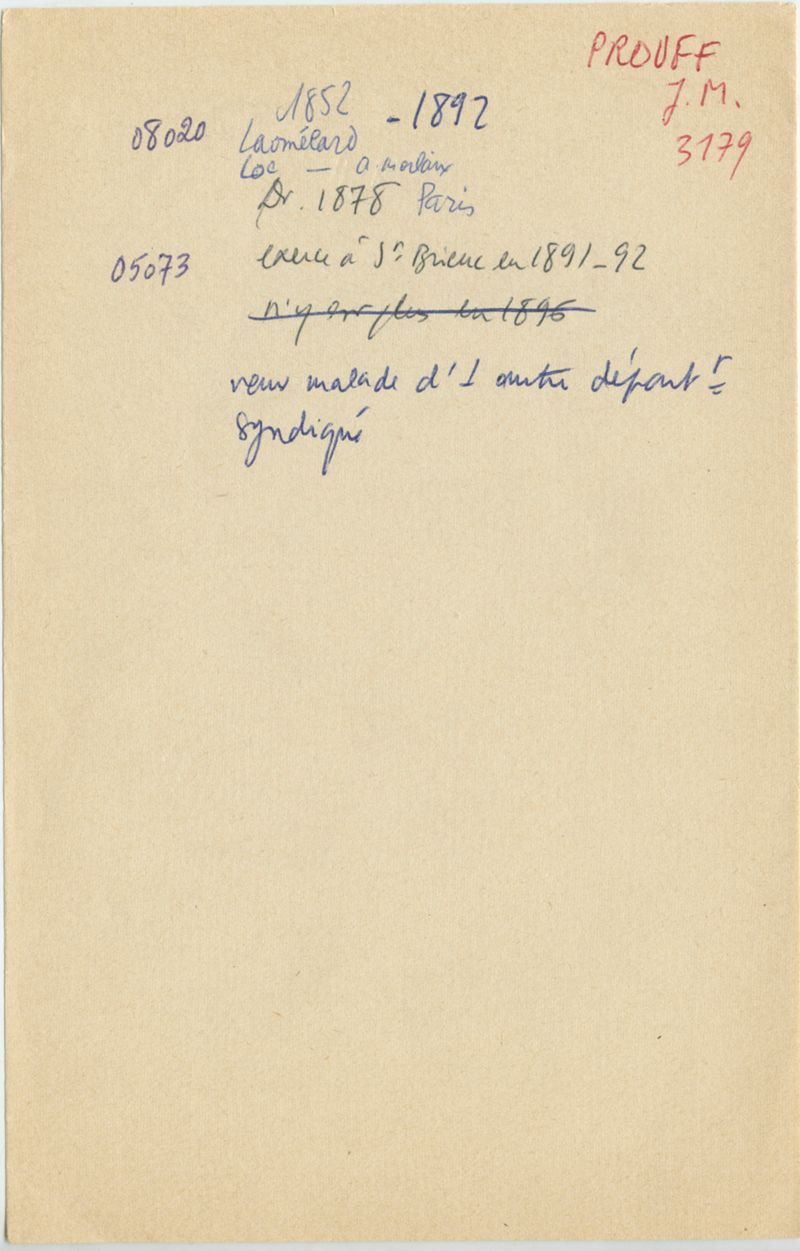 PROUFF
J.M.
3179
1852 - 1892
08020
Laomélard
Loc — a morlaix
Dr. 1878 Paris
05073
exerce à St Brieuc en 1891-92
n'y est plus en 1896
venu malade d'1 autre département
syndiqué